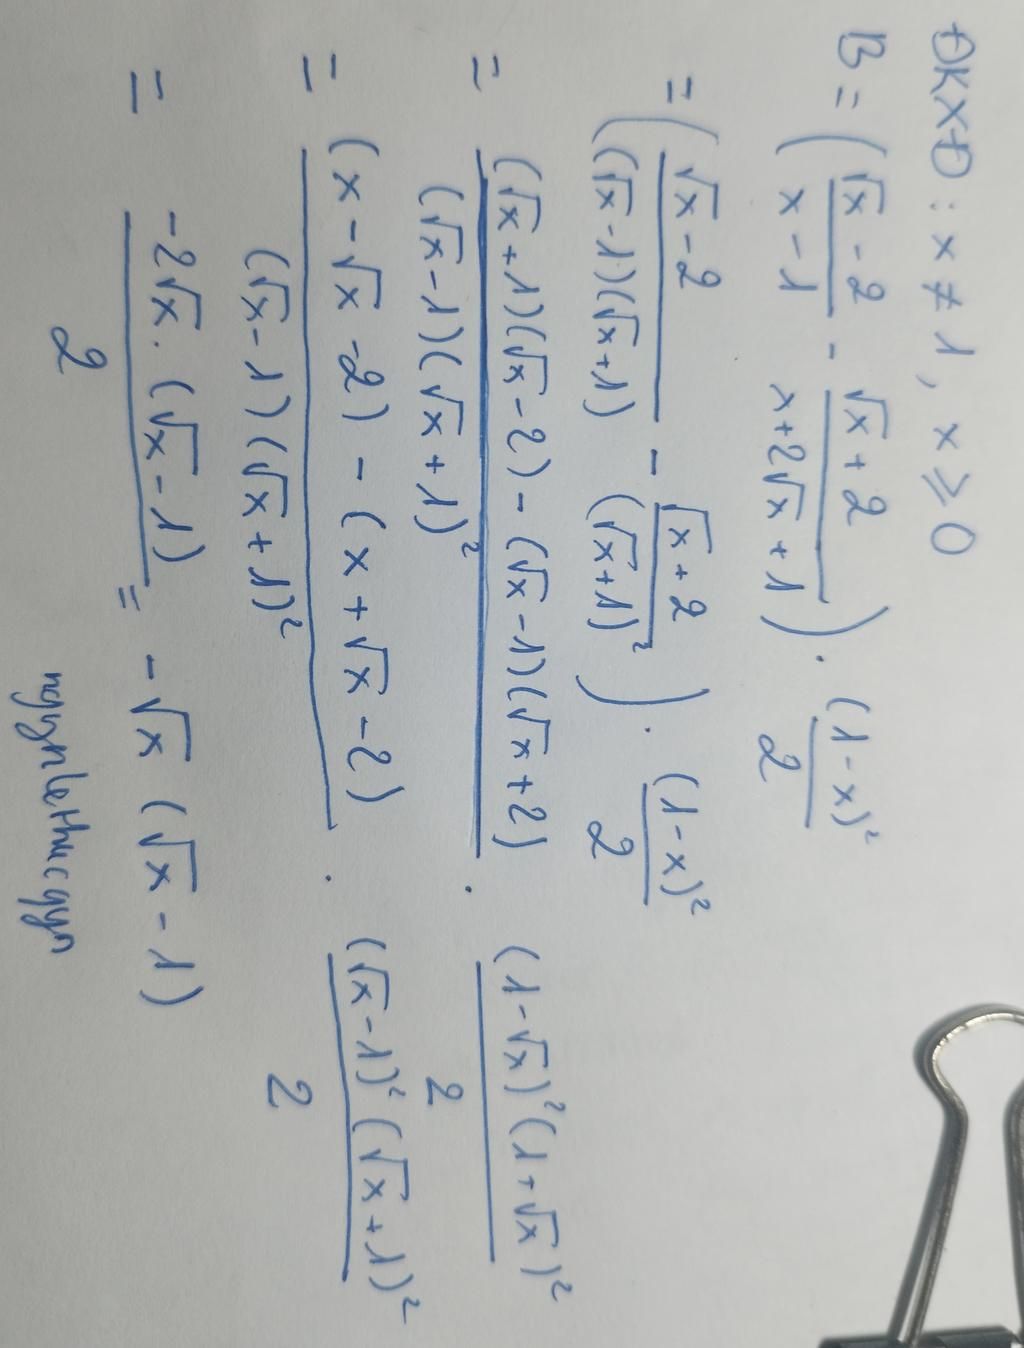 ĐKXĐ: x ≠ 1, x ⩾ 0
B = ( (√x - 2)/(x - 1) - (√x + 2)/(x + 2√x + 1) ) . (1 - x)²/2
= ( (√x - 2)/((√x - 1)(√x + 1)) - (√x + 2)/(√x + 1)² ) . (1 - x)²/2
= ((√x + 1)(√x - 2) - (√x - 1)(√x + 2))/((√x - 1)(√x + 1)²) . (1 - √x)²(1 + √x)²/2
= ((x - √x - 2) - (x + √x - 2))/((√x - 1)(√x + 1)²) . (√x - 1)²(√x + 1)²/2
= (-2√x . (√x - 1))/2 = -√x (√x - 1)